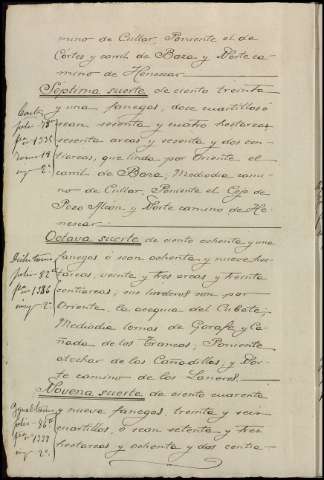 mino de Cullar, Poniente el de
Cortes y caml de Baza y Norte ca-
mino de Huescar
Septima suerte de ciento treinta
y una fanegas, doce cuartillos ó
sean setenta y cuatro hectareas
sesenta areas y sesenta y dos cen-
tiareas, que linda por Oriente el
caml de Baza, Mediodia cami-
no de Cullar, Poniente el Cejo de
Pozo Alcón y Norte camino de Hu-
escar
Octava suerte de ciento ochenta y una
fanegas ó sean ochenta y nueve hec-
tareas, veinte y tres areas y treinta
centiareas; sus linderos son por
Oriente, la acequia del Cubete;
Mediodia lomas de Garafe y Ca-
ñada de los Trancos, Poniente
atochar de las Cañadillas, y Nor-
te camino de los Laneros
Novena suerte de ciento cuarenta
y nueve fanegas treinta y seis
cuartillos, ó sean setenta y tres
hectareas y ochenta y dos centia-